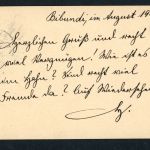 Bibundi im August 19
Herzlichen Gruß und recht
viel Vergnügen! Wie ist es
im Hahn? Sind recht viel
Fremde da? Auf Wiedersehen